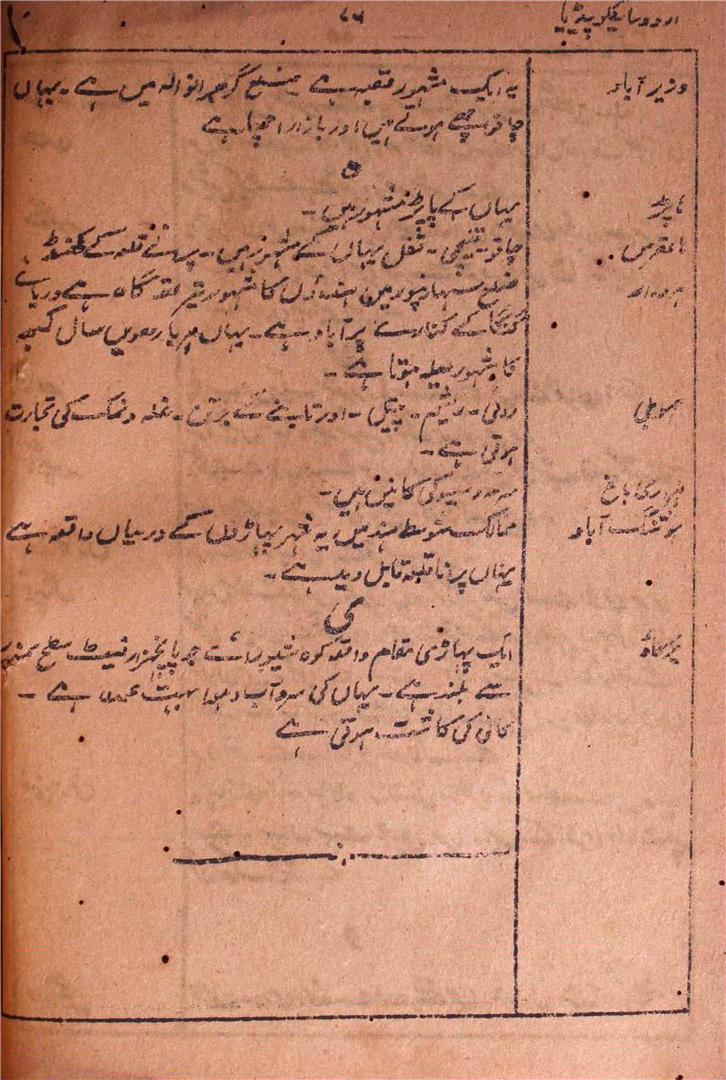 اردو سائیکلوپیڈیا ۷۶
وزیر آباد یہ ایک مشہور قصبہ ہے ضلع گوجرانوالہ میں ہے ۔ یہاں
چاقو اچھے ہوتے ہیں اور بازار اچھا ہے
ہ
ہاپڑ یہاں کے پاپڑ مشہور ہیں ۔
ہاتھرس چاقو ۔ قینچی ۔ قفل یہاں کے مشہور ہیں ۔ پرانے قلعہ کے کھنڈر
ہردوار ضلع سہارنپور میں ہندؤں کا مشہور تیرتھ گاہ ہے دریائے
گنگا کے کنارے پر آباد ہے ۔ یہاں ہر بارھویں سال کنبھ
کا مشہور میلہ ہوتا ہے ۔
ہوبلی روئی ۔ ریشم ۔ پیتل ۔ اور تانبے کے برتن ۔ غلہ و نمک کی تجارت
ہوتی ہے ۔
ہزاری باغ سرمہ و سیسہ کی کانیں ہیں ۔
ہوشنگ آباد ممالک متوسط ہند میں یہ شہر پہاڑوں کے درمیاں واقعہ ہے
یہاں پرانا قلعہ قابل دید ہے ۔
ی
ایک پہاڑی مقام واقعہ کوہ جو پانچہزار فیٹ سطح سمندر
سے بلند ہے ۔ یہاں کی آب و ہوا بہت عمدہ ہے ۔
کافی کی کاشت ہوتی ہے